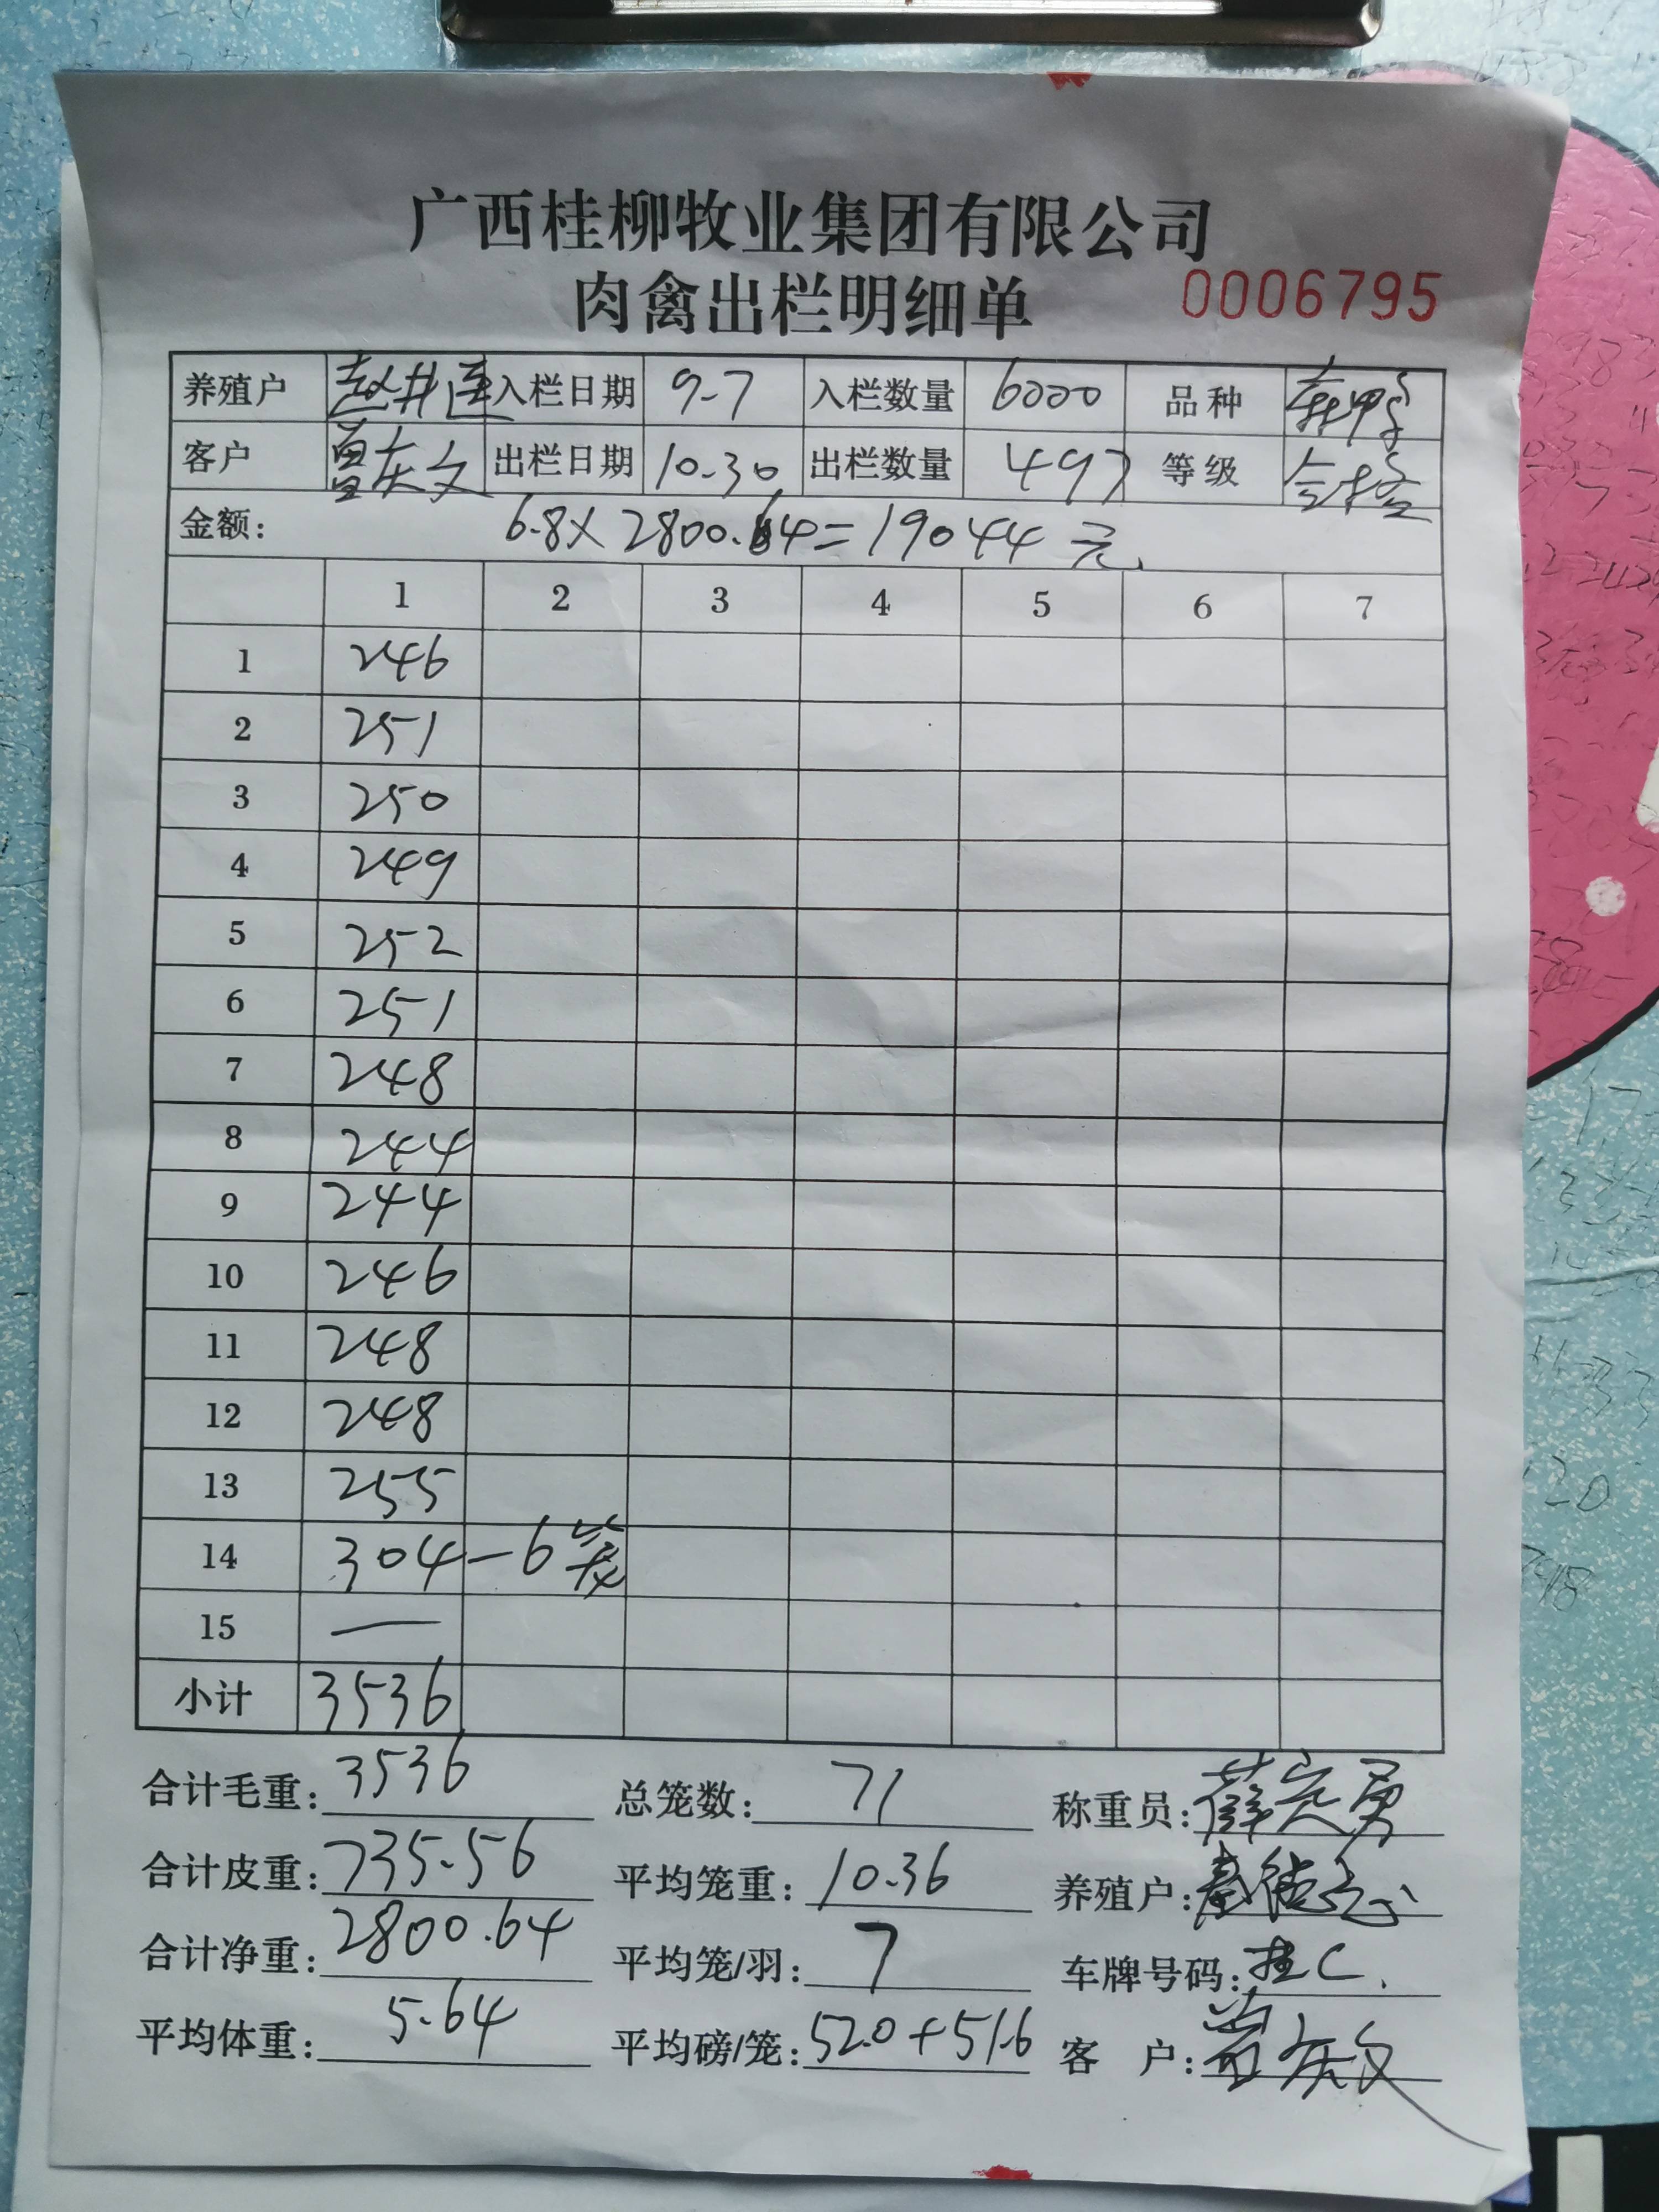 广西桂柳牧业集团有限公司
肉禽出栏明细单 0006795
养殖户 赵井连 入栏日期 9-7 入栏数量 6000 品种
客户 曾庆文 出栏日期 10-30 出栏数量 497 等级 合格
金额: 6.8×2800.64=19044元
1 2 3 4 5 6 7
1 246
2 251
3 250
4 249
5 252
6 251
7 248
8 244
9 244
10 246
11 248
12 248
13 255
14 304-6笼
15 —
小计 3536
合计毛重: 3536 总笼数: 71 称重员:
合计皮重: 735.56 平均笼重: 10.36 养殖户:
合计净重: 2800.64 平均笼/羽: 7 车牌号码: 桂C.
平均体重: 5.64 平均磅/笼: 520+516 客 户: 曾庆文